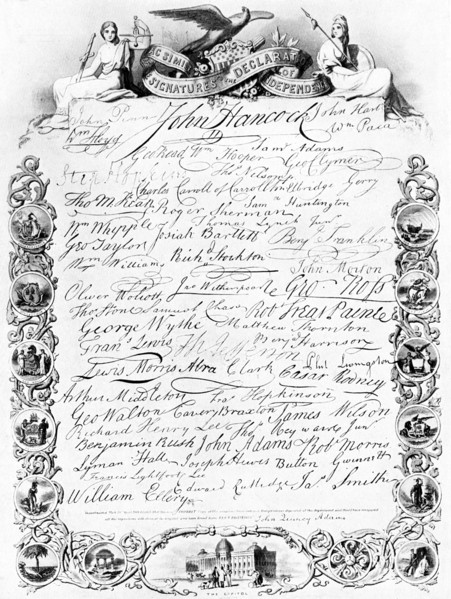 FAC SIMILES
OF THE
SIGNATURES TO THE DECLARATION OF INDEPENDENCE
John Penn John Hancock John Hart
Wm Floyd Wm Paca
Geo Read Wm Hooper Sam Adams Geo Clymer
Step Hopkins Thos Nelson jr
Charles Carroll of Carrollton Elbridge Gerry
Tho M:Kean Roger Sherman Saml Huntington
Wm Whipple Thomas Lynch Junr
Josiah Bartlett Benj Franklin
Geo Taylor Richd Stockton
Wm Williams John Morton
Oliver Wolcott Jno Witherspoon Geo Ross
Thos Stone Samuel Chase Robt Treat Paine
George Wythe Matthew Thornton
Frans Lewis Th Jefferson Benj Harrison
Lewis Morris Abra Clark Caesar Rodney Phil Livingston
Arthur Middleton Fras Hopkinson
Geo Walton Carter Braxton James Wilson
Richard Henry Lee Thos Heyward Junr
Benjamin Rush John Adams Robt Morris
Lyman Hall Joseph Hewes Button Gwinnett
Francis Lightfoot Lee
William Ellery Edward Rutledge Jas Smith
John Quincy Adams
THE CAPITOL